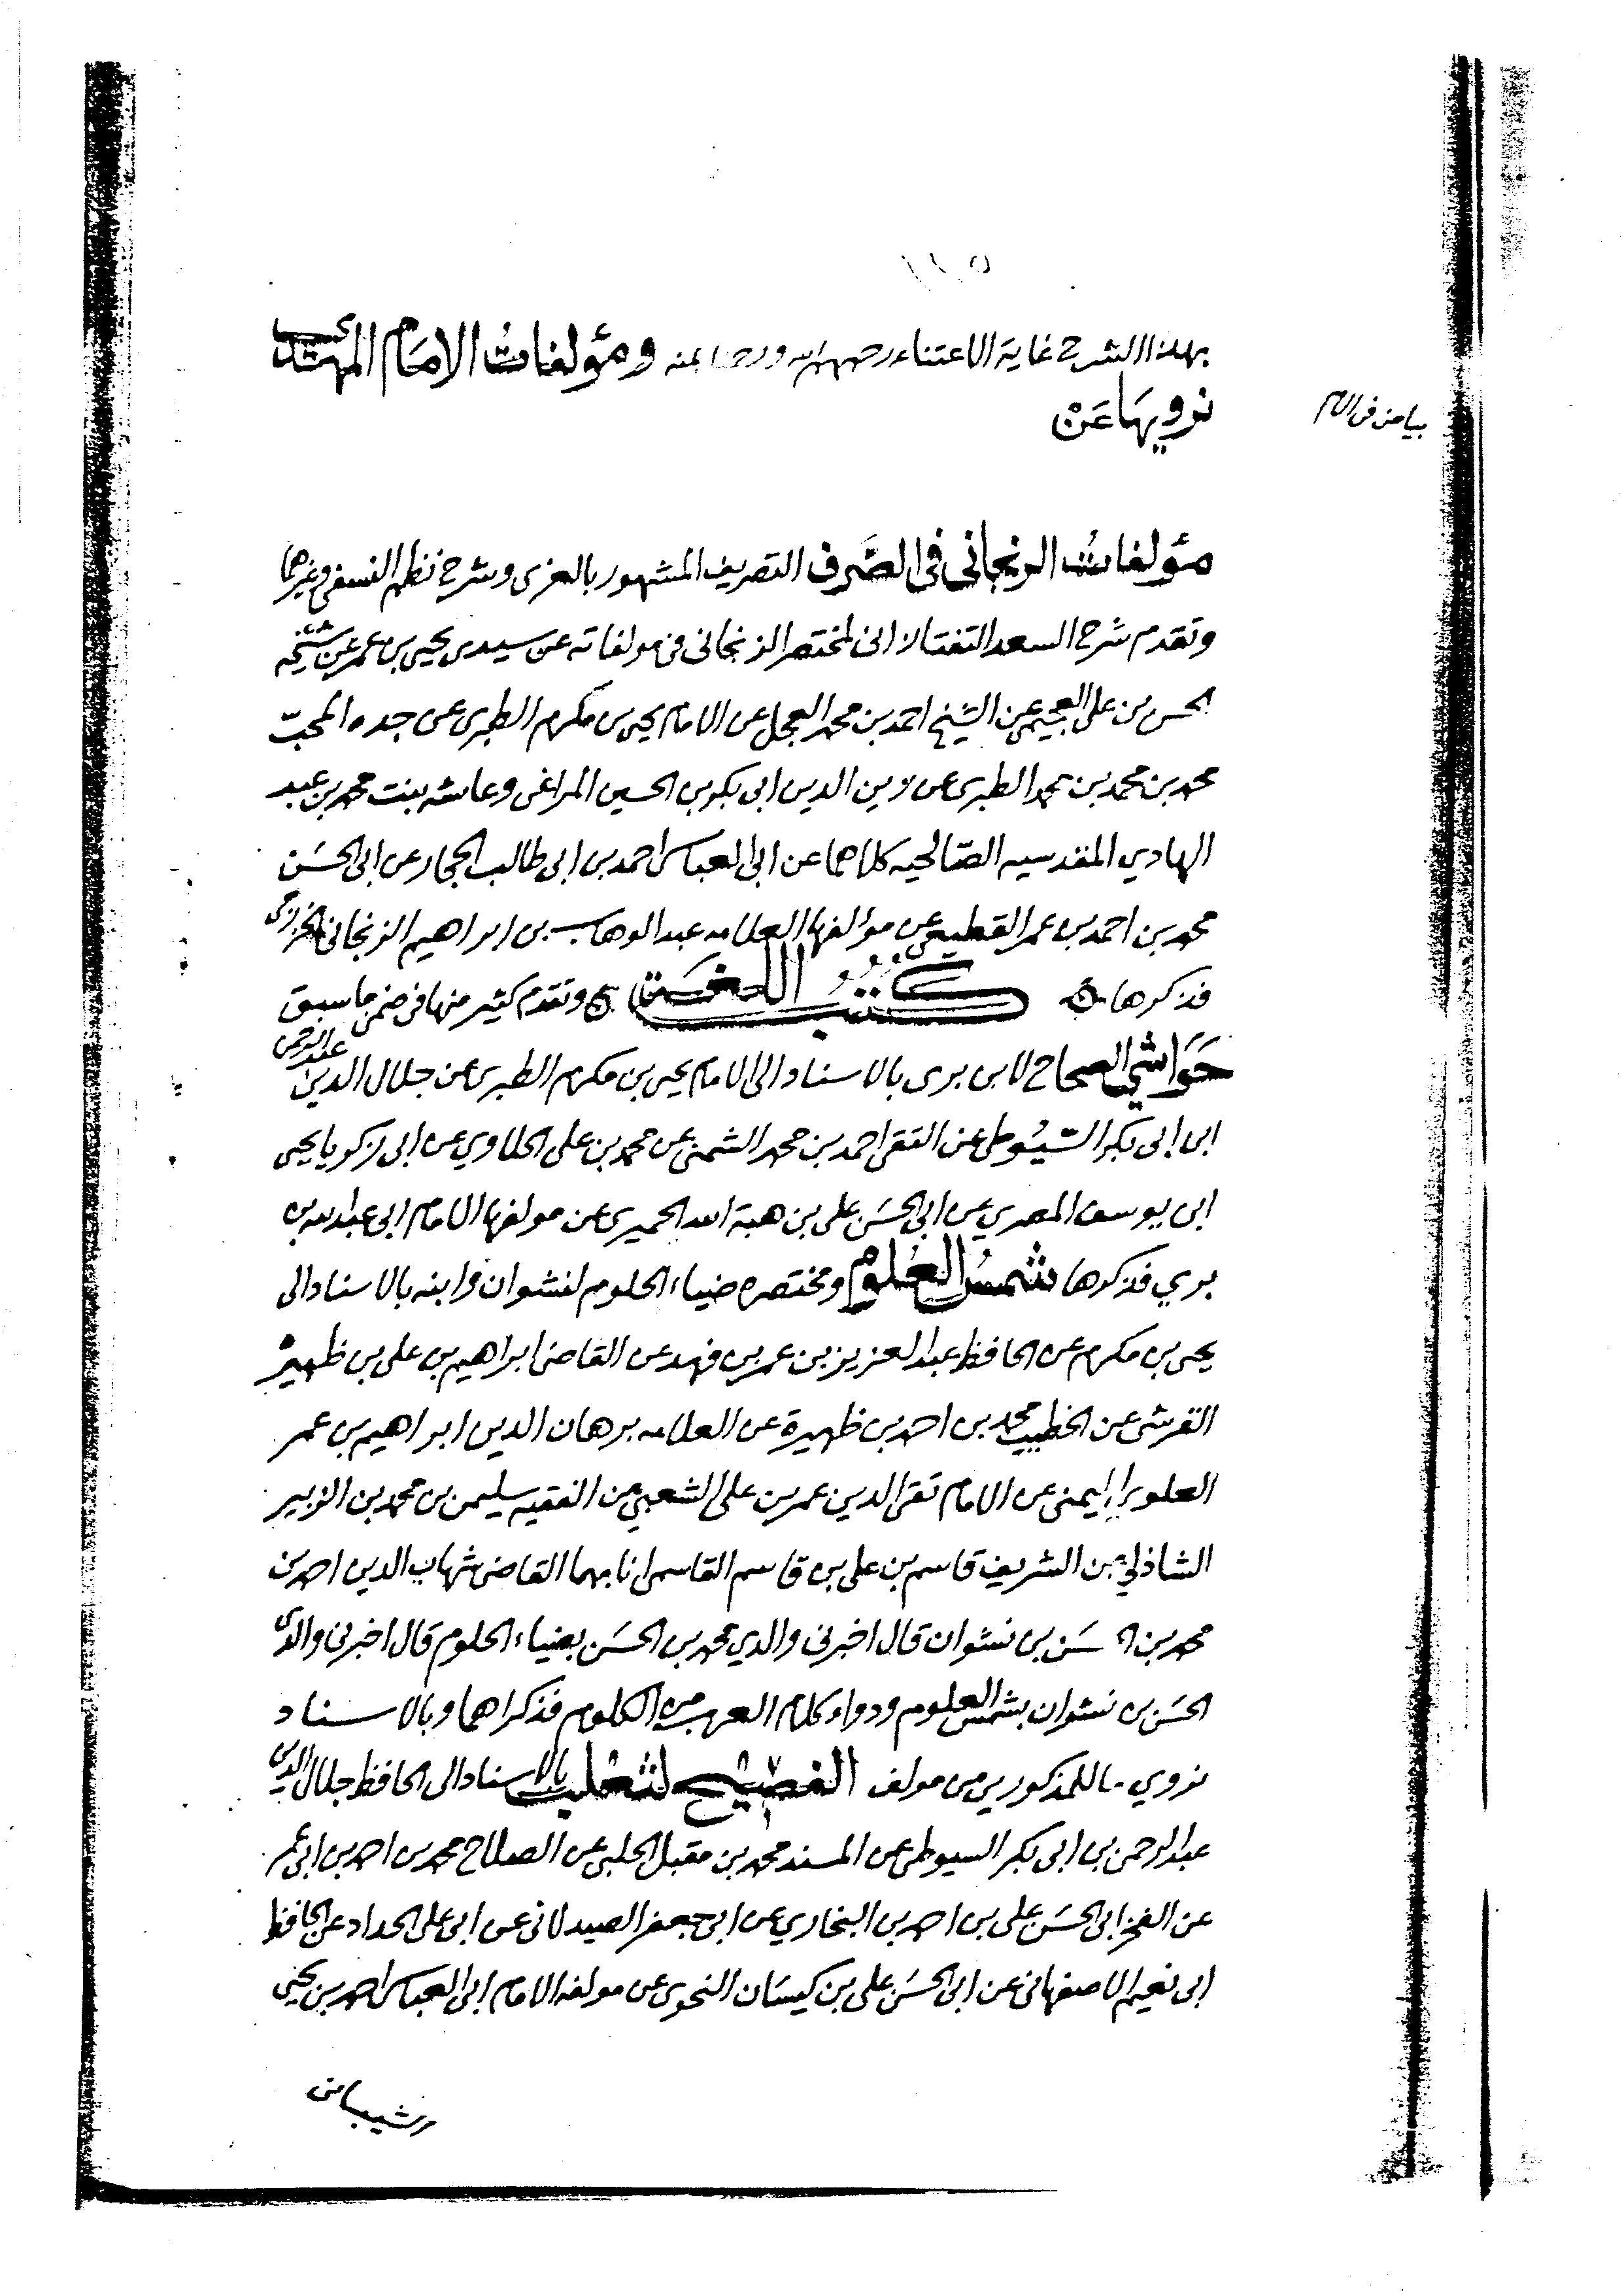 بهذا الشرح غاية الاعتناء رحمهم الله ومؤلفات الامام المهتدى
نرويها عَنْ
بياض في الام
مؤلفات الزنجاني في الصَّرف التصريف المشهور بالعزى وشرح نظم النسفي وغيرهما
وتقدم شرح السعد التفتازانى لمختصر الزنجانى في مولفاته عن سيدى يحيى بن عمر عن شيخه
الحسن بن على العجيمي عن الشيخ احمد بن محمد العجل عن الامام يحيى بن مكرم الطبرى عن جده المحبّ
محمد بن محمد بن محمد الطبرى عن زين الدين ابى بكر بن الحسين المراغى وعائشه بنت محمد بن عبد
الهادي المقدسيه الصّالحيه كلاهما عن ابى العباس احمد بن ابى طالب الحجار عن ابى الحسَن
محمد بن احمد بن عمر القطيعى عن مؤلفها العلامه عبد الوهاب بن ابراهيم الزنجانى الخزرجى
فذكرها كتب اللغة وتقدم كثير منها فى ضمن ما سبق
حَوَاشي الصحاح لابن برى بالاسناد الى الامام يحيى بن مكرم الطبرى عن جلال الدين عبد الرحمن
ابن ابى بكر السّيُوطى عن التقى احمد بن محمد الشمنى عن محمد بن على الحلاوي عن ابى زكريا يحيى
ابن يوسف المصري عن ابى الحسَن على بن هبة الله الحميرى عن مولفها الامام ابى عبد الله بن
بري فذكرها شمسُ العُلوم ومختصره ضياء الحلوم لنشوان وابنه بالاسناد الى
يحيى بن مكرم عن الحافظ عبد العزيز بن عمر بن فهد عن القاضى ابراهيم بن على بن ظهيرة
القرشى عن الخطيب محمد بن احمد بن ظهيرة عن العلامه برهان الدين ابراهيم بن عمر
العلوى اليمنى عن الامام تقى الدين عمر بن على الشعبي عن الفقيه سليمن بن محمد بن الزبير
الشاذلي عن الشريف قاسم بن على بن قاسم القاسمى انا بهما القاضى شهاب الدين احمد بن
محمد بن الحسَن بن نشوان قال اخبرنى والدي محمد بن الحسَن بضياء الحلوم قال اخبرنى والدى
الحسَن بن نشوان بشمس العلوم ودواء كلام العرب من الكلوم فذكراهما وبالاسناد
نروي ما للمذكورين من مولف الفصيح لثعلب بالاسناد الى الحافظ جلال الدين
عبد الرحمن بن ابى بكر السيوطى عن المسند محمد بن مقبل الحلبى عن الصلاح محمد بن احمد بن ابى عمر
عن الفخر ابى الحسَن على بن احمد بن البخاري عن ابى جعفر الصيدلانى عن ابى على الحداد عن الحافظ
ابى نعيم الاصفهانى عن ابى الحسَن على بن كيسَان النحوى عن مولفه الامام ابى العباس احمد بن يحيى